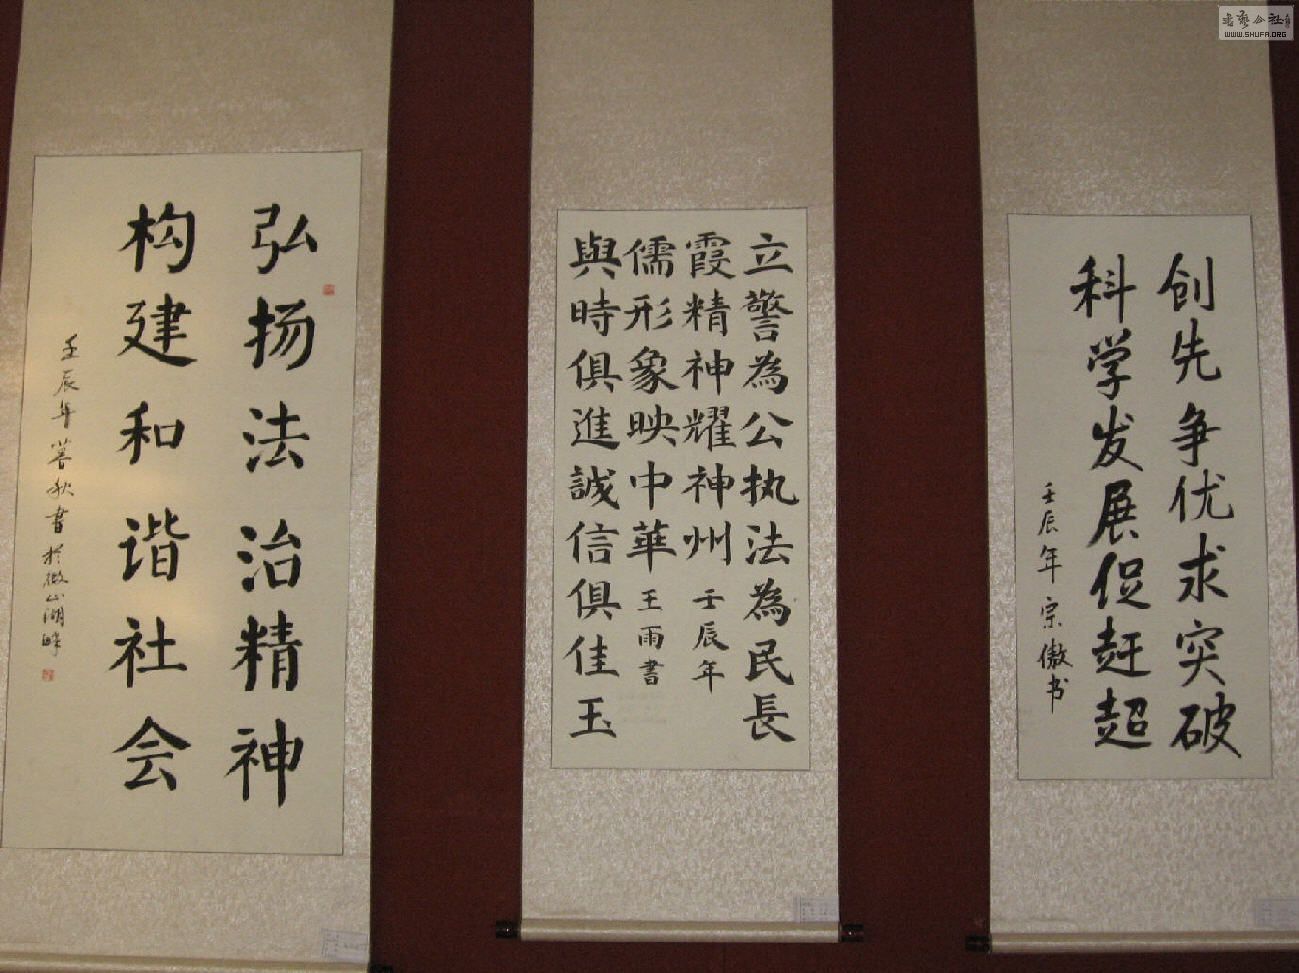 创先争优求突破
科学发展促赶超
壬辰年 宗傲书
立警為公执法為民長
霞精神耀神州
壬辰年
與時俱進誠信俱佳玉
儒形象映中華
王雨書
弘扬法治精神
构建和谐社会
壬辰年 秋書於微山湖畔
書藝公社
WWW.SHUFA.ORG